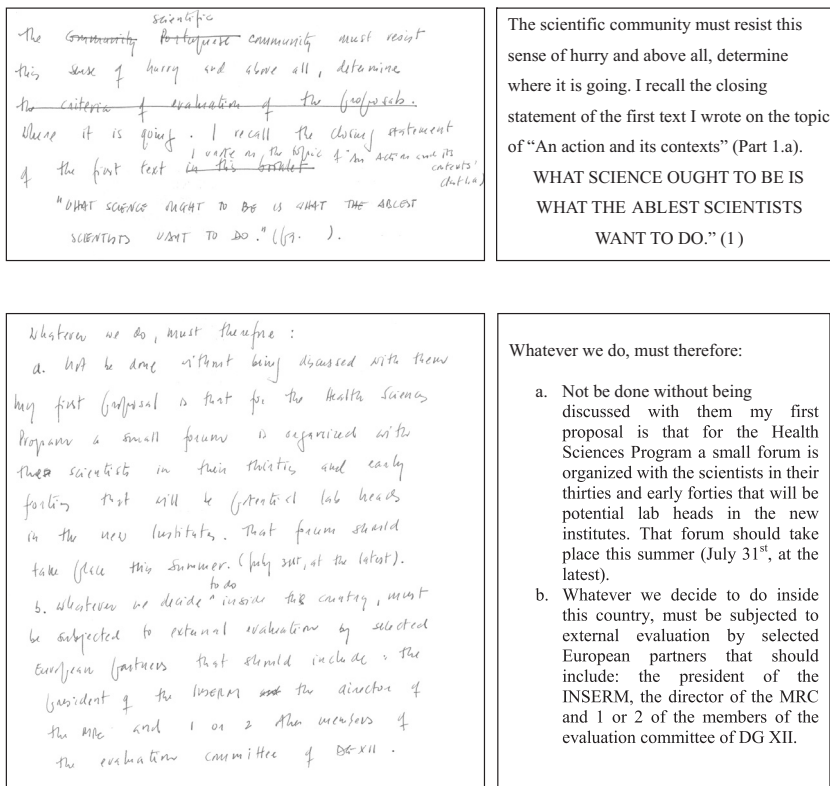 scientific
The Community Portuguese community must resist
this sense of hurry and above all, determine
the criteria of evaluation of the proposals.
Where it is going. I recall the closing statement
I wrote on the topic of "An Action and its
contexts"
of the first text in this booklet
"WHAT SCIENCE OUGHT TO BE IS WHAT THE ABLEST
SCIENTISTS WANT TO DO." (pg. ).
The scientific community must resist this
sense of hurry and above all, determine
where it is going. I recall the closing
statement of the first text I wrote on the topic
of “An action and its contexts” (Part 1.a).
WHAT SCIENCE OUGHT TO BE IS
WHAT THE ABLEST SCIENTISTS
WANT TO DO.” (1)
Whatever we do, must therefore :
a. Not be done without being discussed with them
my first proposal is that for the Health Sciences
Program a small forum is organized with
the scientists in their thirties and early
forties that will be potential lab heads
in the new Institutes. That forum should
take place this Summer. (July 31st, at the latest).
to do
b. Whatever we decide inside this country, must
be subjected to external evaluation by selected
European partners that should include : the
president of the INSERM and the director of
the MRC and 1 or 2 other members of
the evaluation committee of DG-XII .
Whatever we do, must therefore:
a. Not be done without being
discussed with them my first
proposal is that for the Health
Sciences Program a small forum is
organized with the scientists in their
thirties and early forties that will be
potential lab heads in the new
institutes. That forum should take
place this summer (July 31st, at the
latest).
b. Whatever we decide to do inside
this country, must be subjected to
external evaluation by selected
European partners that should
include: the president of the
INSERM, the director of the MRC
and 1 or 2 of the members of the
evaluation committee of DG XII.